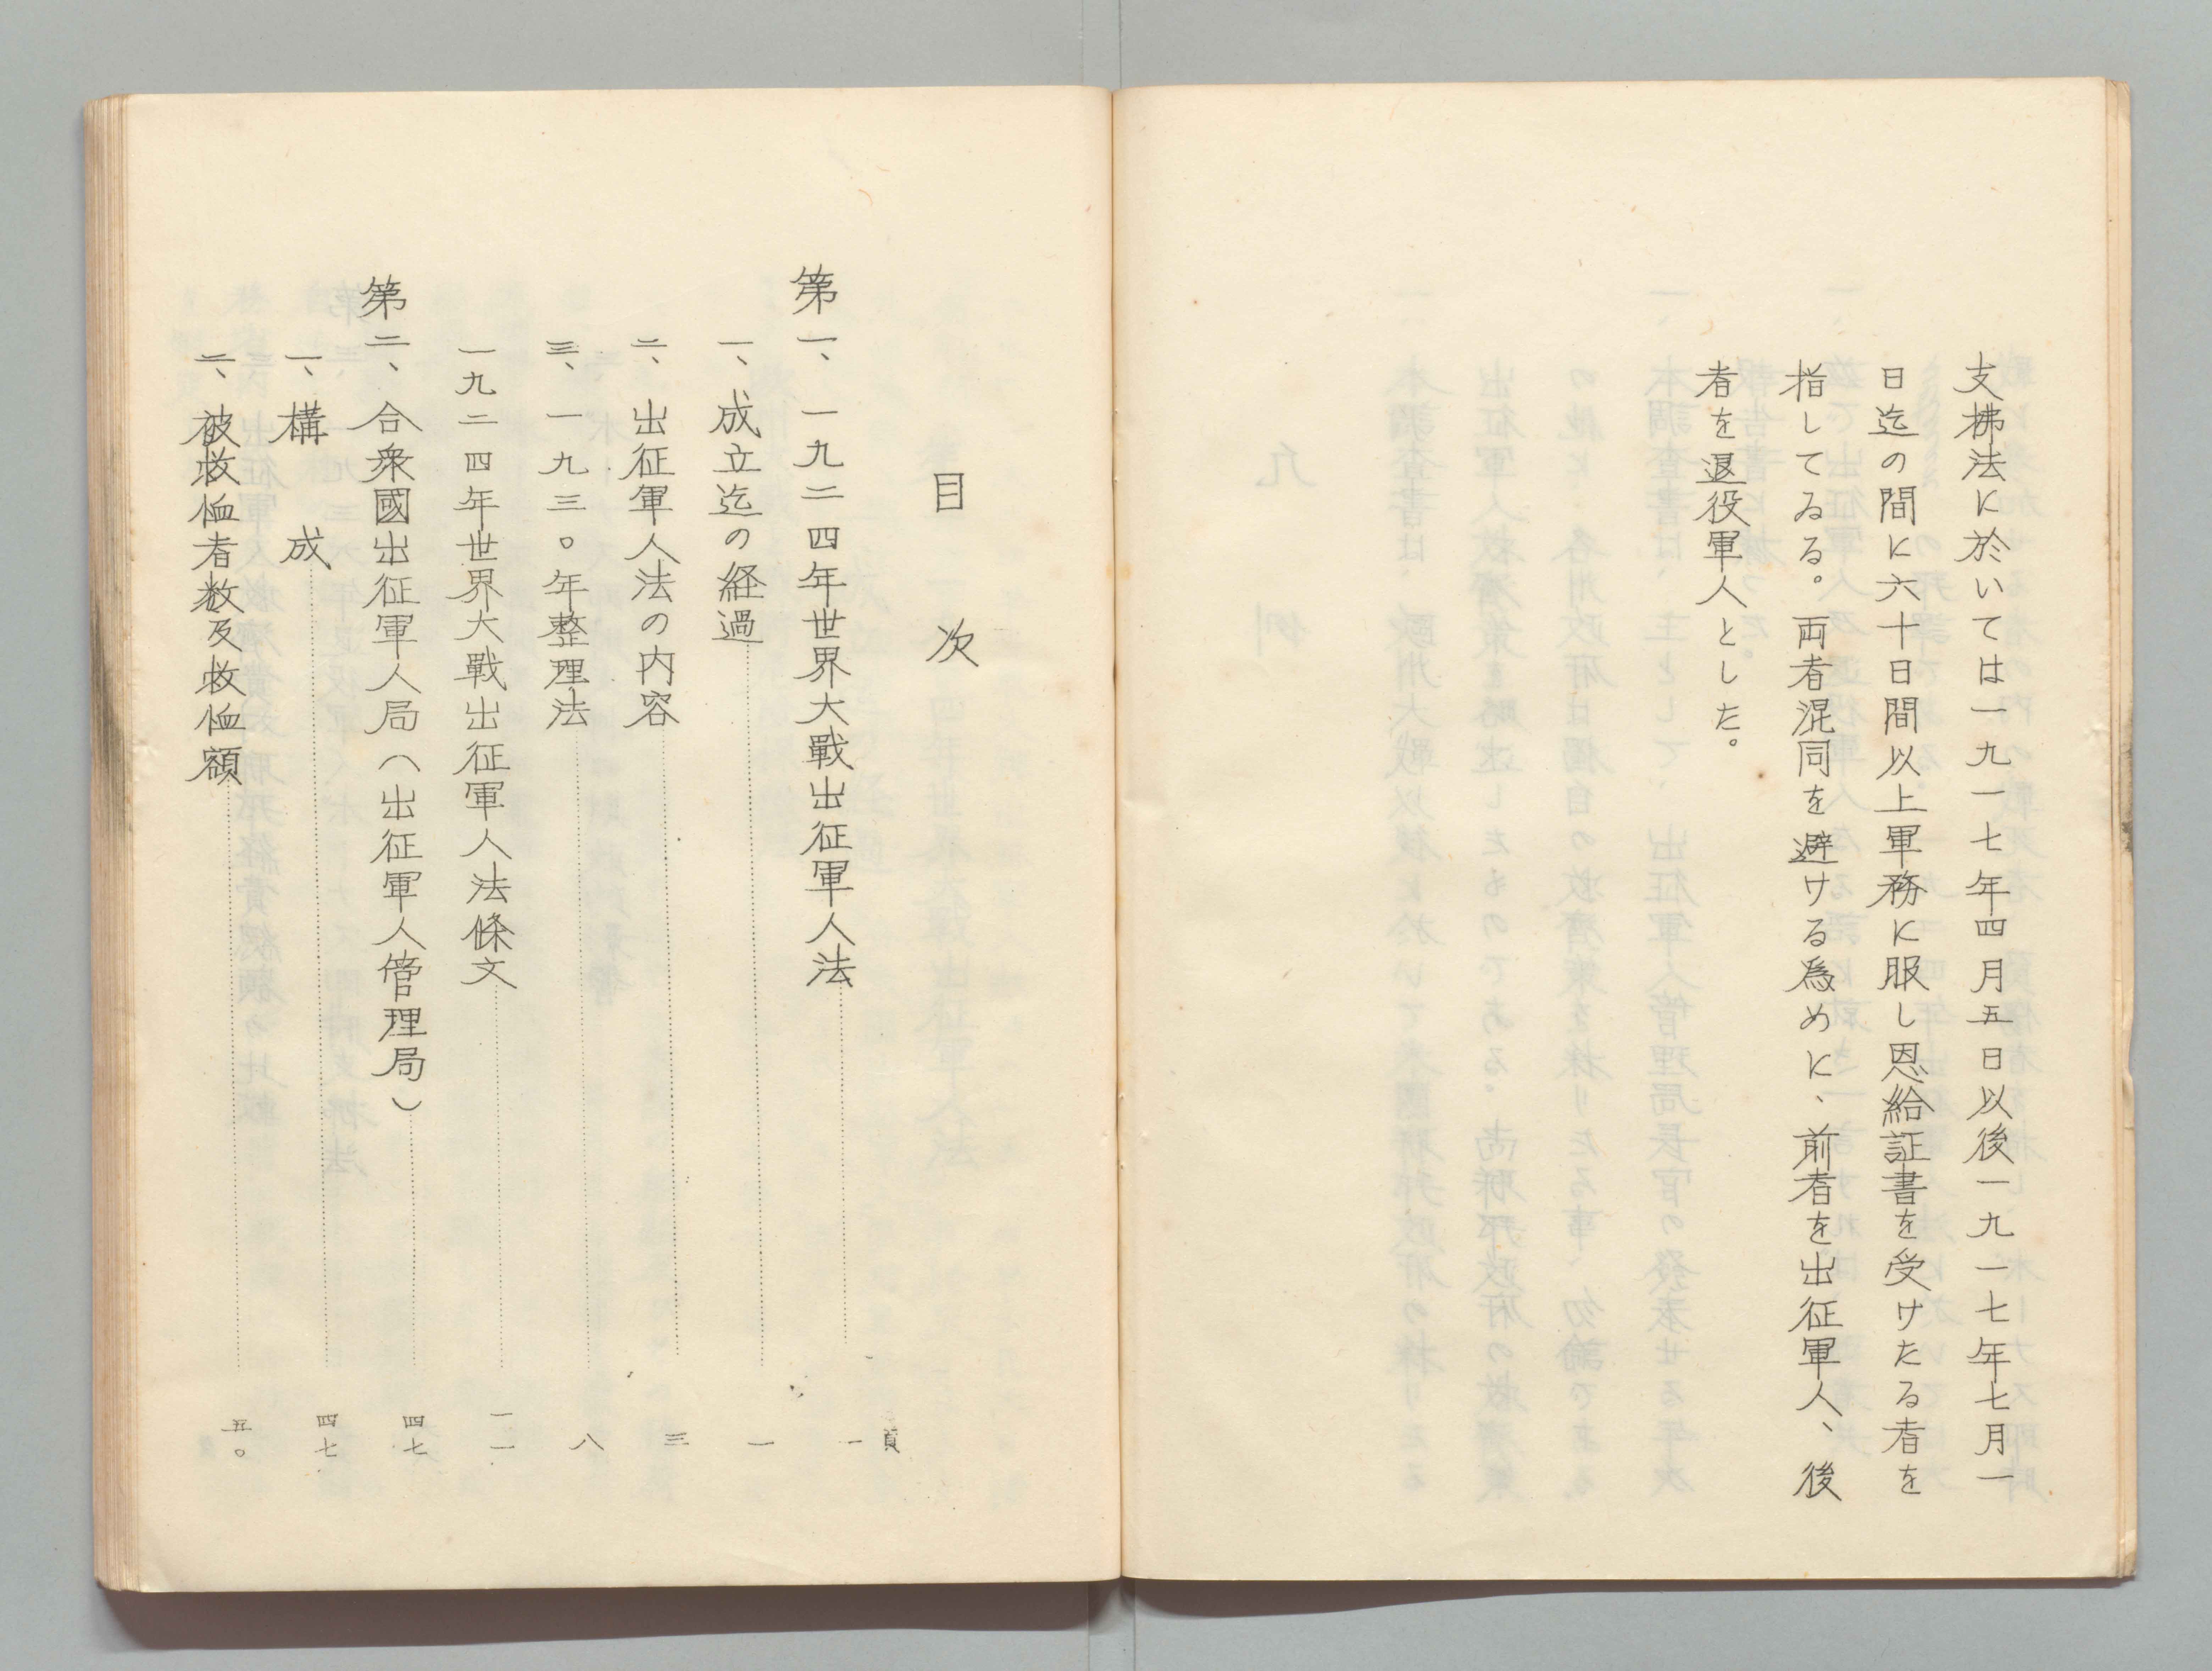 支拂法に於いては一九一七年四月五日以後一九一七年七月一
日迄の間に六十日間以上軍務に服し恩給証書を受けたる者を
指してゐる。両者混同を避ける爲めに、前者を出征軍人、後
者を退役軍人とした。
目次
頁
第一、一九二四年世界大戰出征軍人法 一
一、成立迄の経過 一
二、出征軍人法の内容 三
三、一九三〇年整理法 八
一九二四年世界大戰出征軍人法條文 一一
第二、合衆國出征軍人局（出征軍人管理局） 四七
一、構成 四七
二、被救恤者数及救恤額 五〇